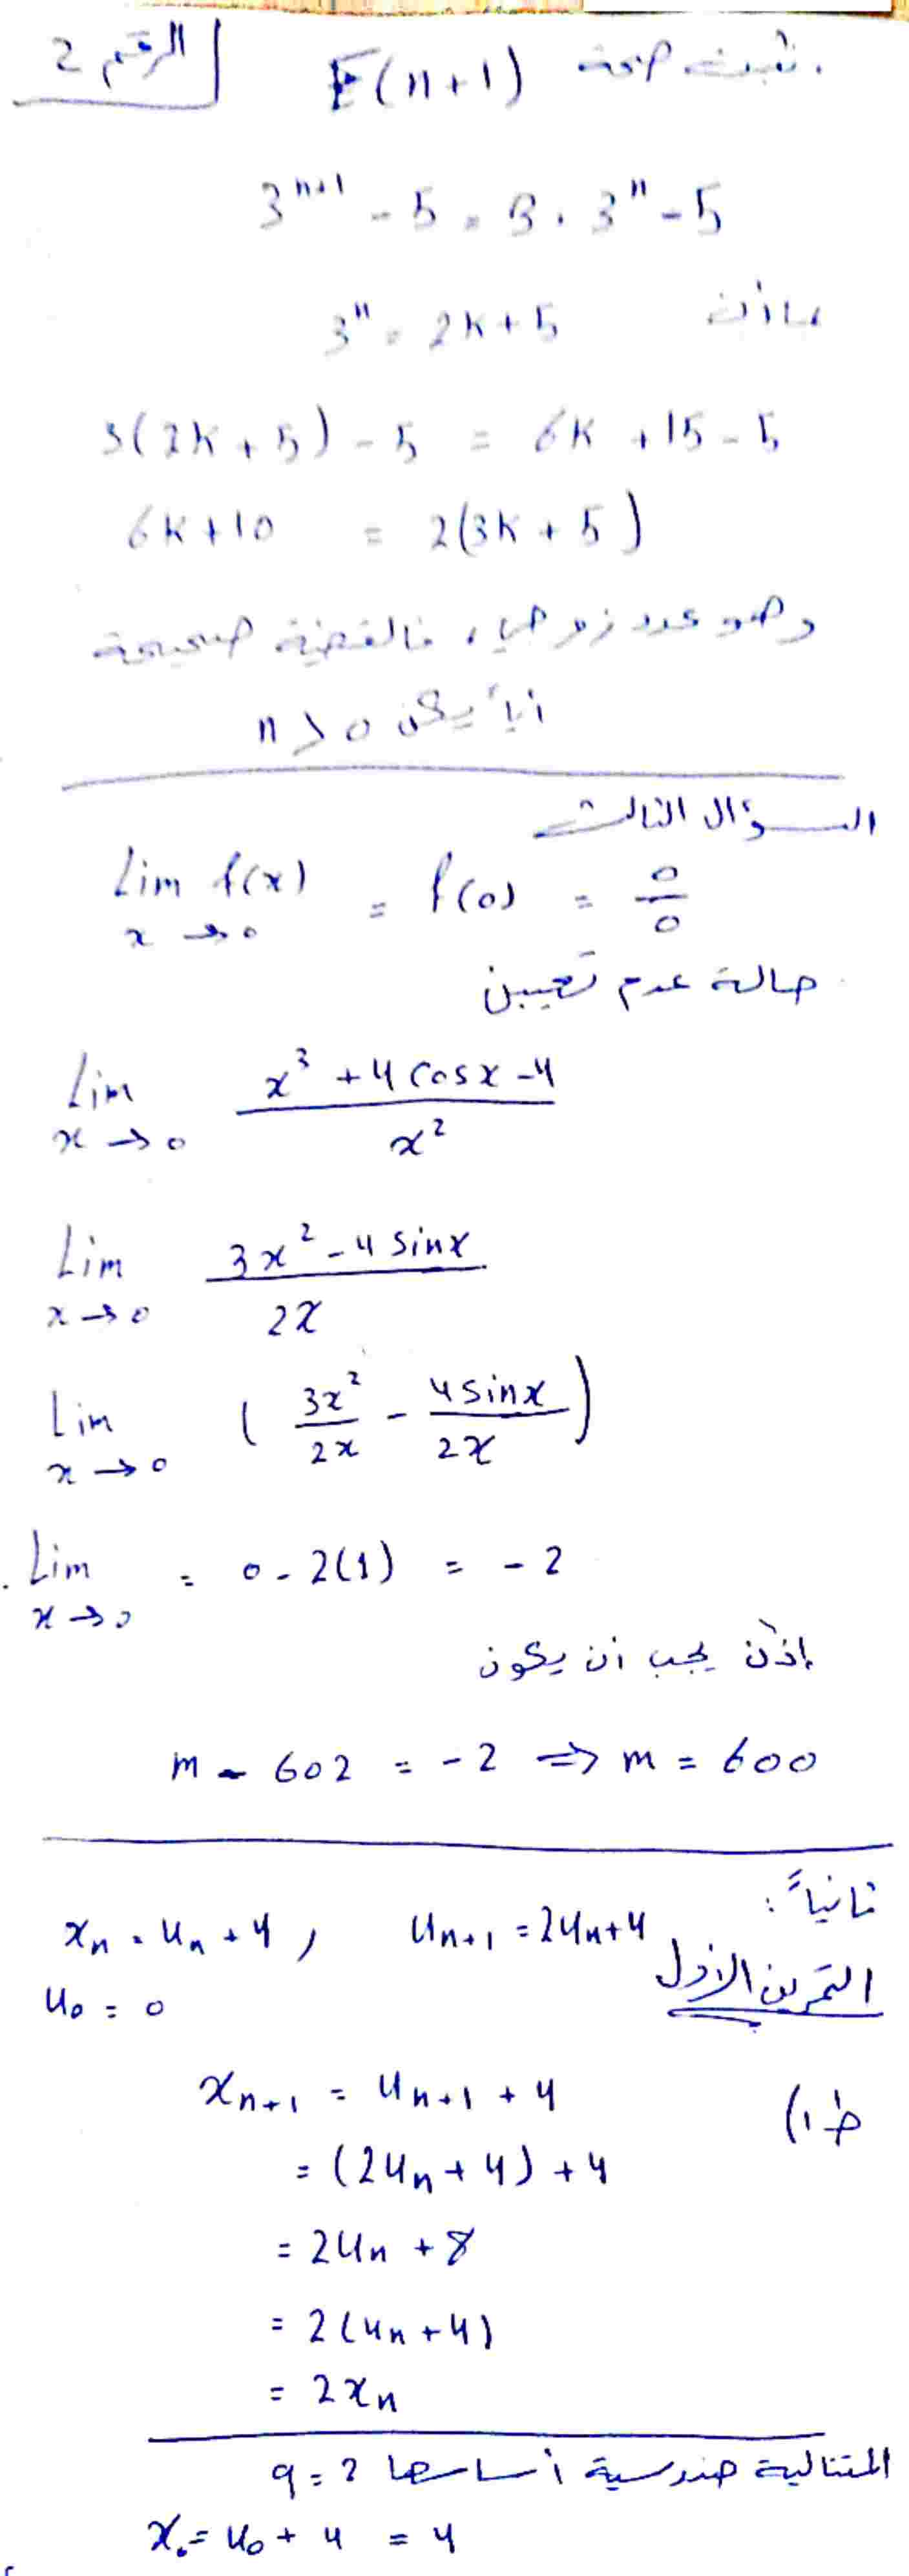 الرقم 2
نثبت صحة E(n+1)
3^{n+1} - 5 = 3 . 3^n - 5
بما أن 3^n = 2k + 5
3(2k + 5) - 5 = 6k + 15 - 5
6k + 10 = 2(3k + 5)
وهو عدد زوجي ، فالقضية صحيحة
أياً يكن n > 0
السؤال الثالث
Lim f(x) = f(0) = 0/0
x → 0
حالة عدم تعيين
Lim (x^3 + 4 cos x - 4) / x^2
x → 0
Lim (3x^2 - 4 sin x) / 2x
x → 0
Lim ( 3x^2/2x - 4 sin x/2x )
x → 0
Lim = 0 - 2(1) = -2
x → 0
إذن يجب أن يكون
m - 602 = -2 ⇒ m = 600
ثانياً :
x_n = u_n + 4 , u_{n+1} = 2u_n + 4
التمرين الأول
u_0 = 0
ط1) x_{n+1} = u_{n+1} + 4
= (2u_n + 4) + 4
= 2u_n + 8
= 2(u_n + 4)
= 2x_n
المتتالية هندسية أساسها q = 2
x_0 = u_0 + 4 = 4